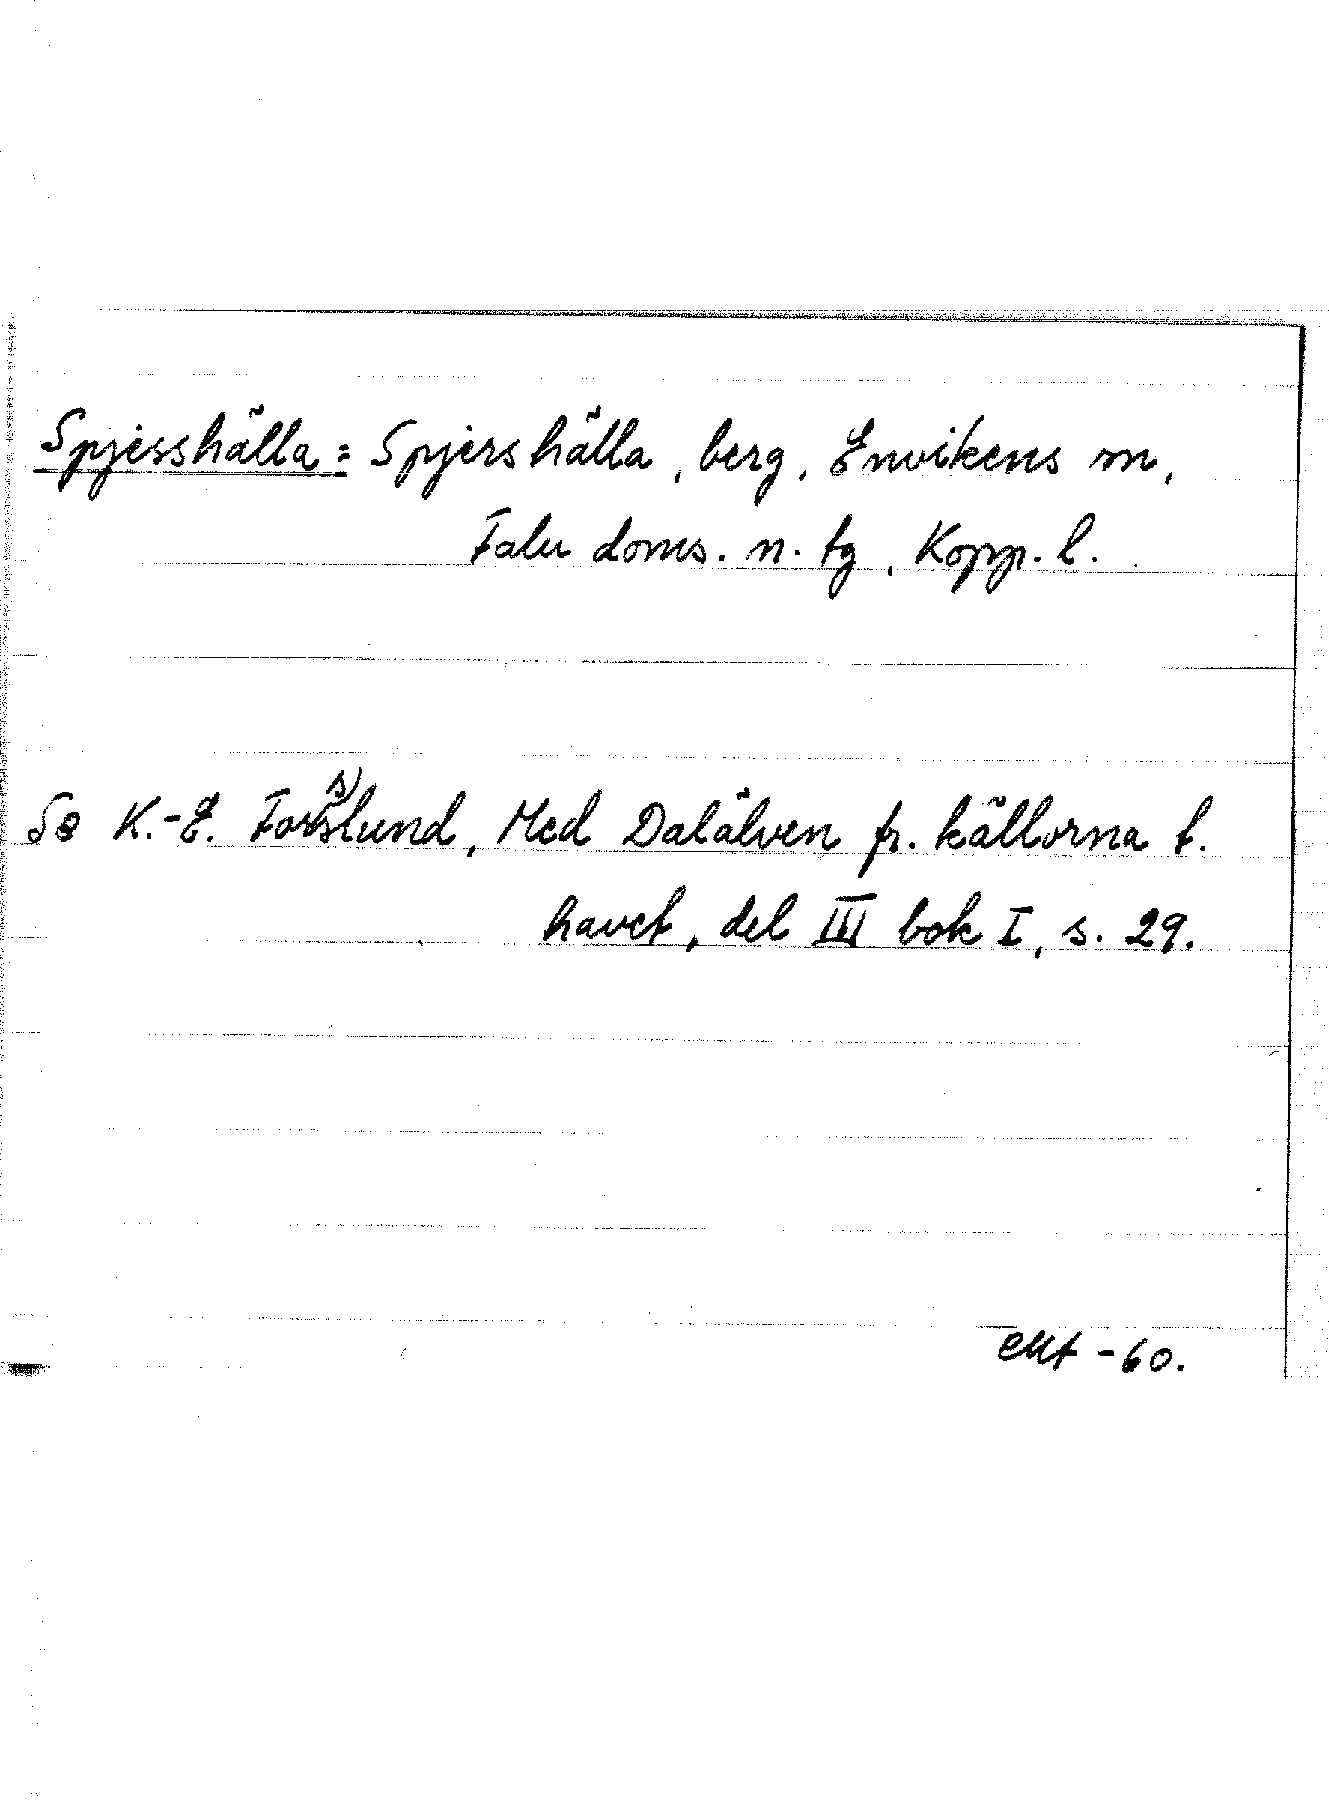 Spjesshälla = Spjershälla, berg, Envikens sn,
Falu doms. n. tg, Kopp. l.
Se K.-E. Forsslund, Med Dalälven fr. källorna t.
havet, del III bok I, s. 29.
-60.